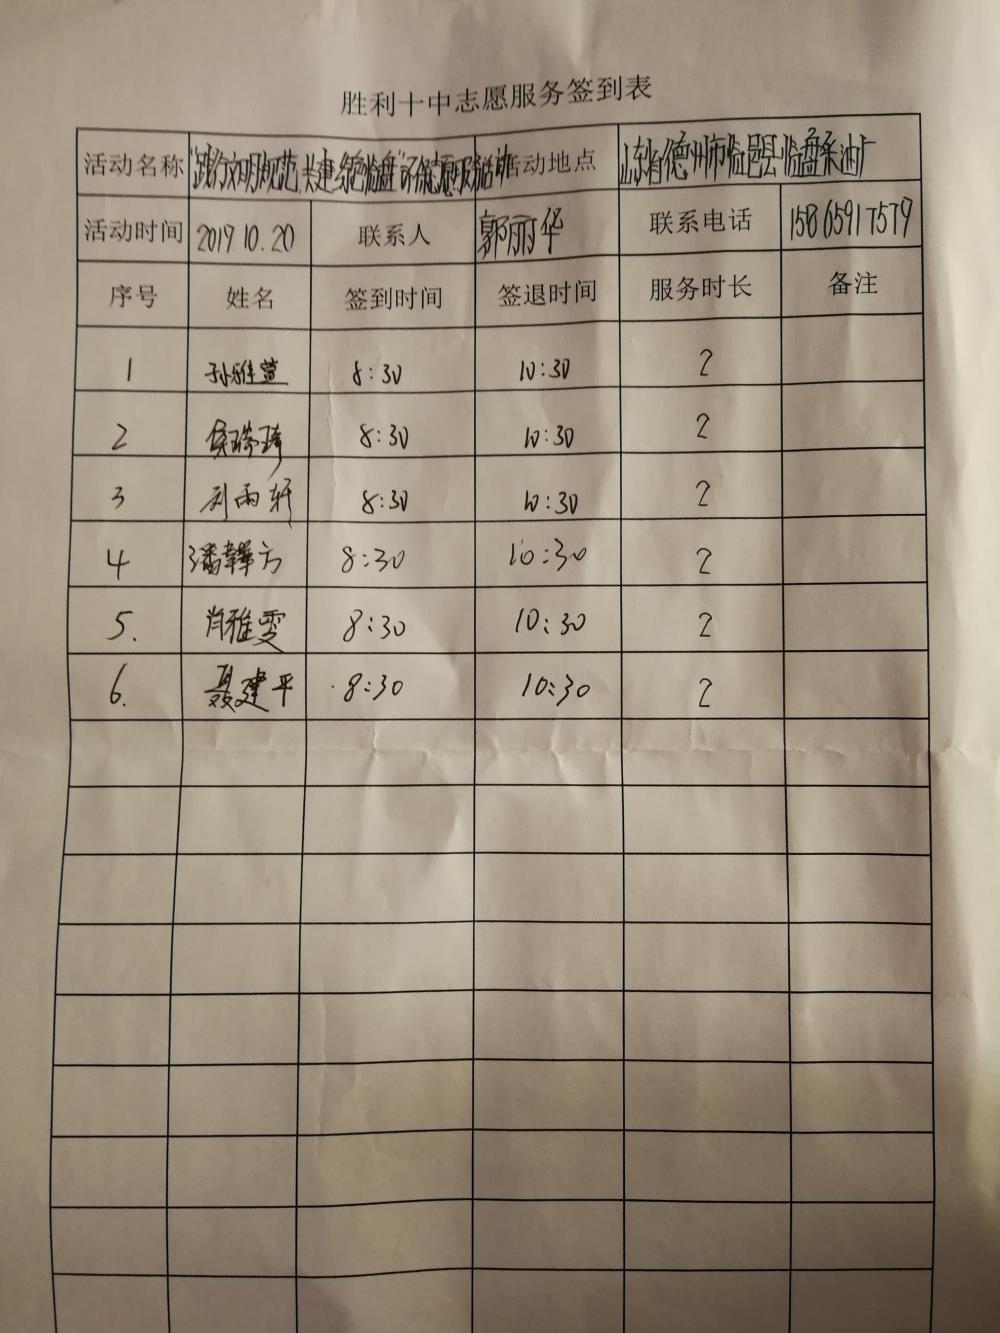 胜利十中志愿服务签到表
活动名称 "践行文明规范,共建绿色临盘"环保志愿服务活动 活动地点 山东省德州市临邑县临盘采油厂
活动时间 2019 10.20 联系人 郭丽华 联系电话 15865917579
序号 姓名 签到时间 签退时间 服务时长 备注
1 孙雅萱 8:30 10:30 2
2 8:30 10:30 2
3 刘雨轩 8:30 10:30 2
4 潘 方 8:30 10:30 2
5. 肖雅雯 8:30 10:30 2
6. 聂建平 8:30 10:30 2